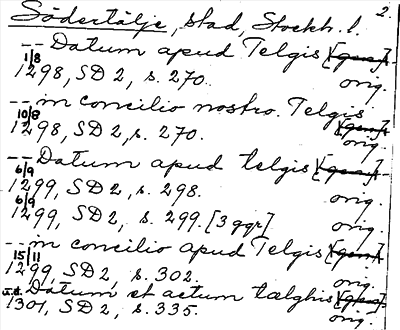 Södertälje, stad, Stockh. l. 2.
-- Datum apud Telgis [gen].
1/8 1298, SD 2, s. 270. orig.
-- in concilio nostro. Telgis [gen].
10/8 1298, SD 2, s. 270. orig.
-- Datum apud telgis [gen].
6/9 1299, SD 2, s. 298. orig.
6/9 1299, SD 2, s. 299. [3 ggr] orig.
-- in concilio apud Telgis [gen].
15/11 1299, SD 2, s. 302. orig.
Datum et actum tælghis [gen].
u.d. 1301, SD 2, s. 335. orig.